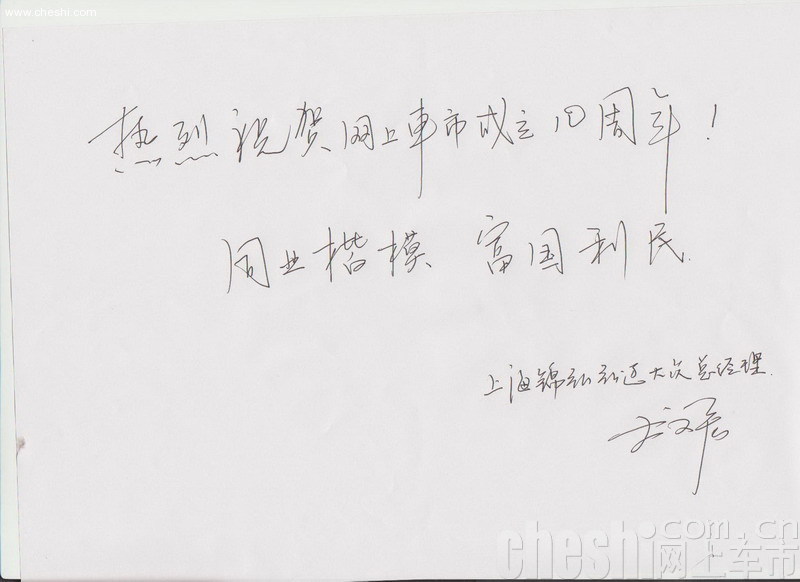 www.cheshi.com
热烈祝贺网上車市成立10周年！
同业楷模 富国利民.
上海锦弘 大众总经理.
cheshi.com.cn
网上车市